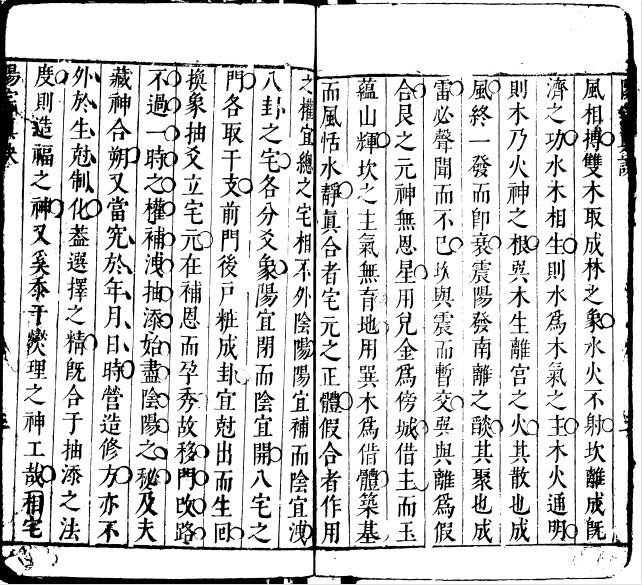 風相搏雙木取成林之象水火不射坎離成旣
濟之功水木相生則水爲木氣之主木火通明
則木乃火神之根巽木生離宮之火其散也成
風終一發而卽衰震陽發南離之燄其聚也成
雷必聲聞而不已坎與震而暫交巽與離爲假
合艮之元神無恩星用兌金爲傍城借主而玉
蘊山輝坎之主氣無育地用巽木爲借體築基
而風恬水靜眞合者宅元之正體假合者作用
之權宜總之宅相不外陰陽陽宜補而陰宜洩
八卦之宅各分爻象陽宜閉而陰宜開八宅之
門各取干支前門後戶粧成卦宜尅出而生回
換象抽爻立宅元在補恩而孕秀故移門改路
不過一時之權補洩抽添始盡陰陽之秘及夫
藏神合朔又當究於年月日時營造修方亦不
外於生尅制化葢選擇之精旣合于抽添之法
度則造福之神又奚忝于燮理之神工哉相宅
陽宅眞訣